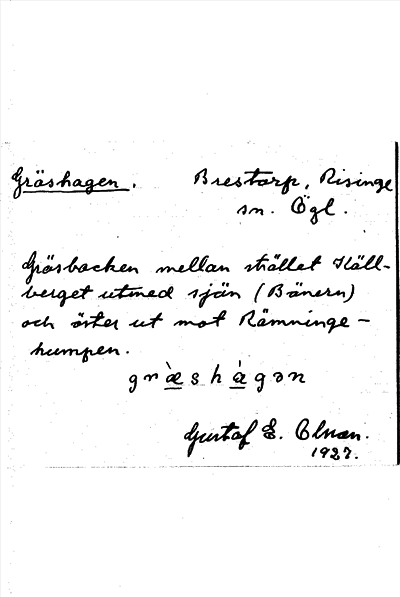 Gräshagen. Brestorp, Risinge
sn. Ögl.
Gräsbacken mellan stället Käll-
berget utmed sjön (Bönern)
och öster ut mot Rämninge-
humpen.
græ̀shàgən
Gustaf E. Olsson.
1927.